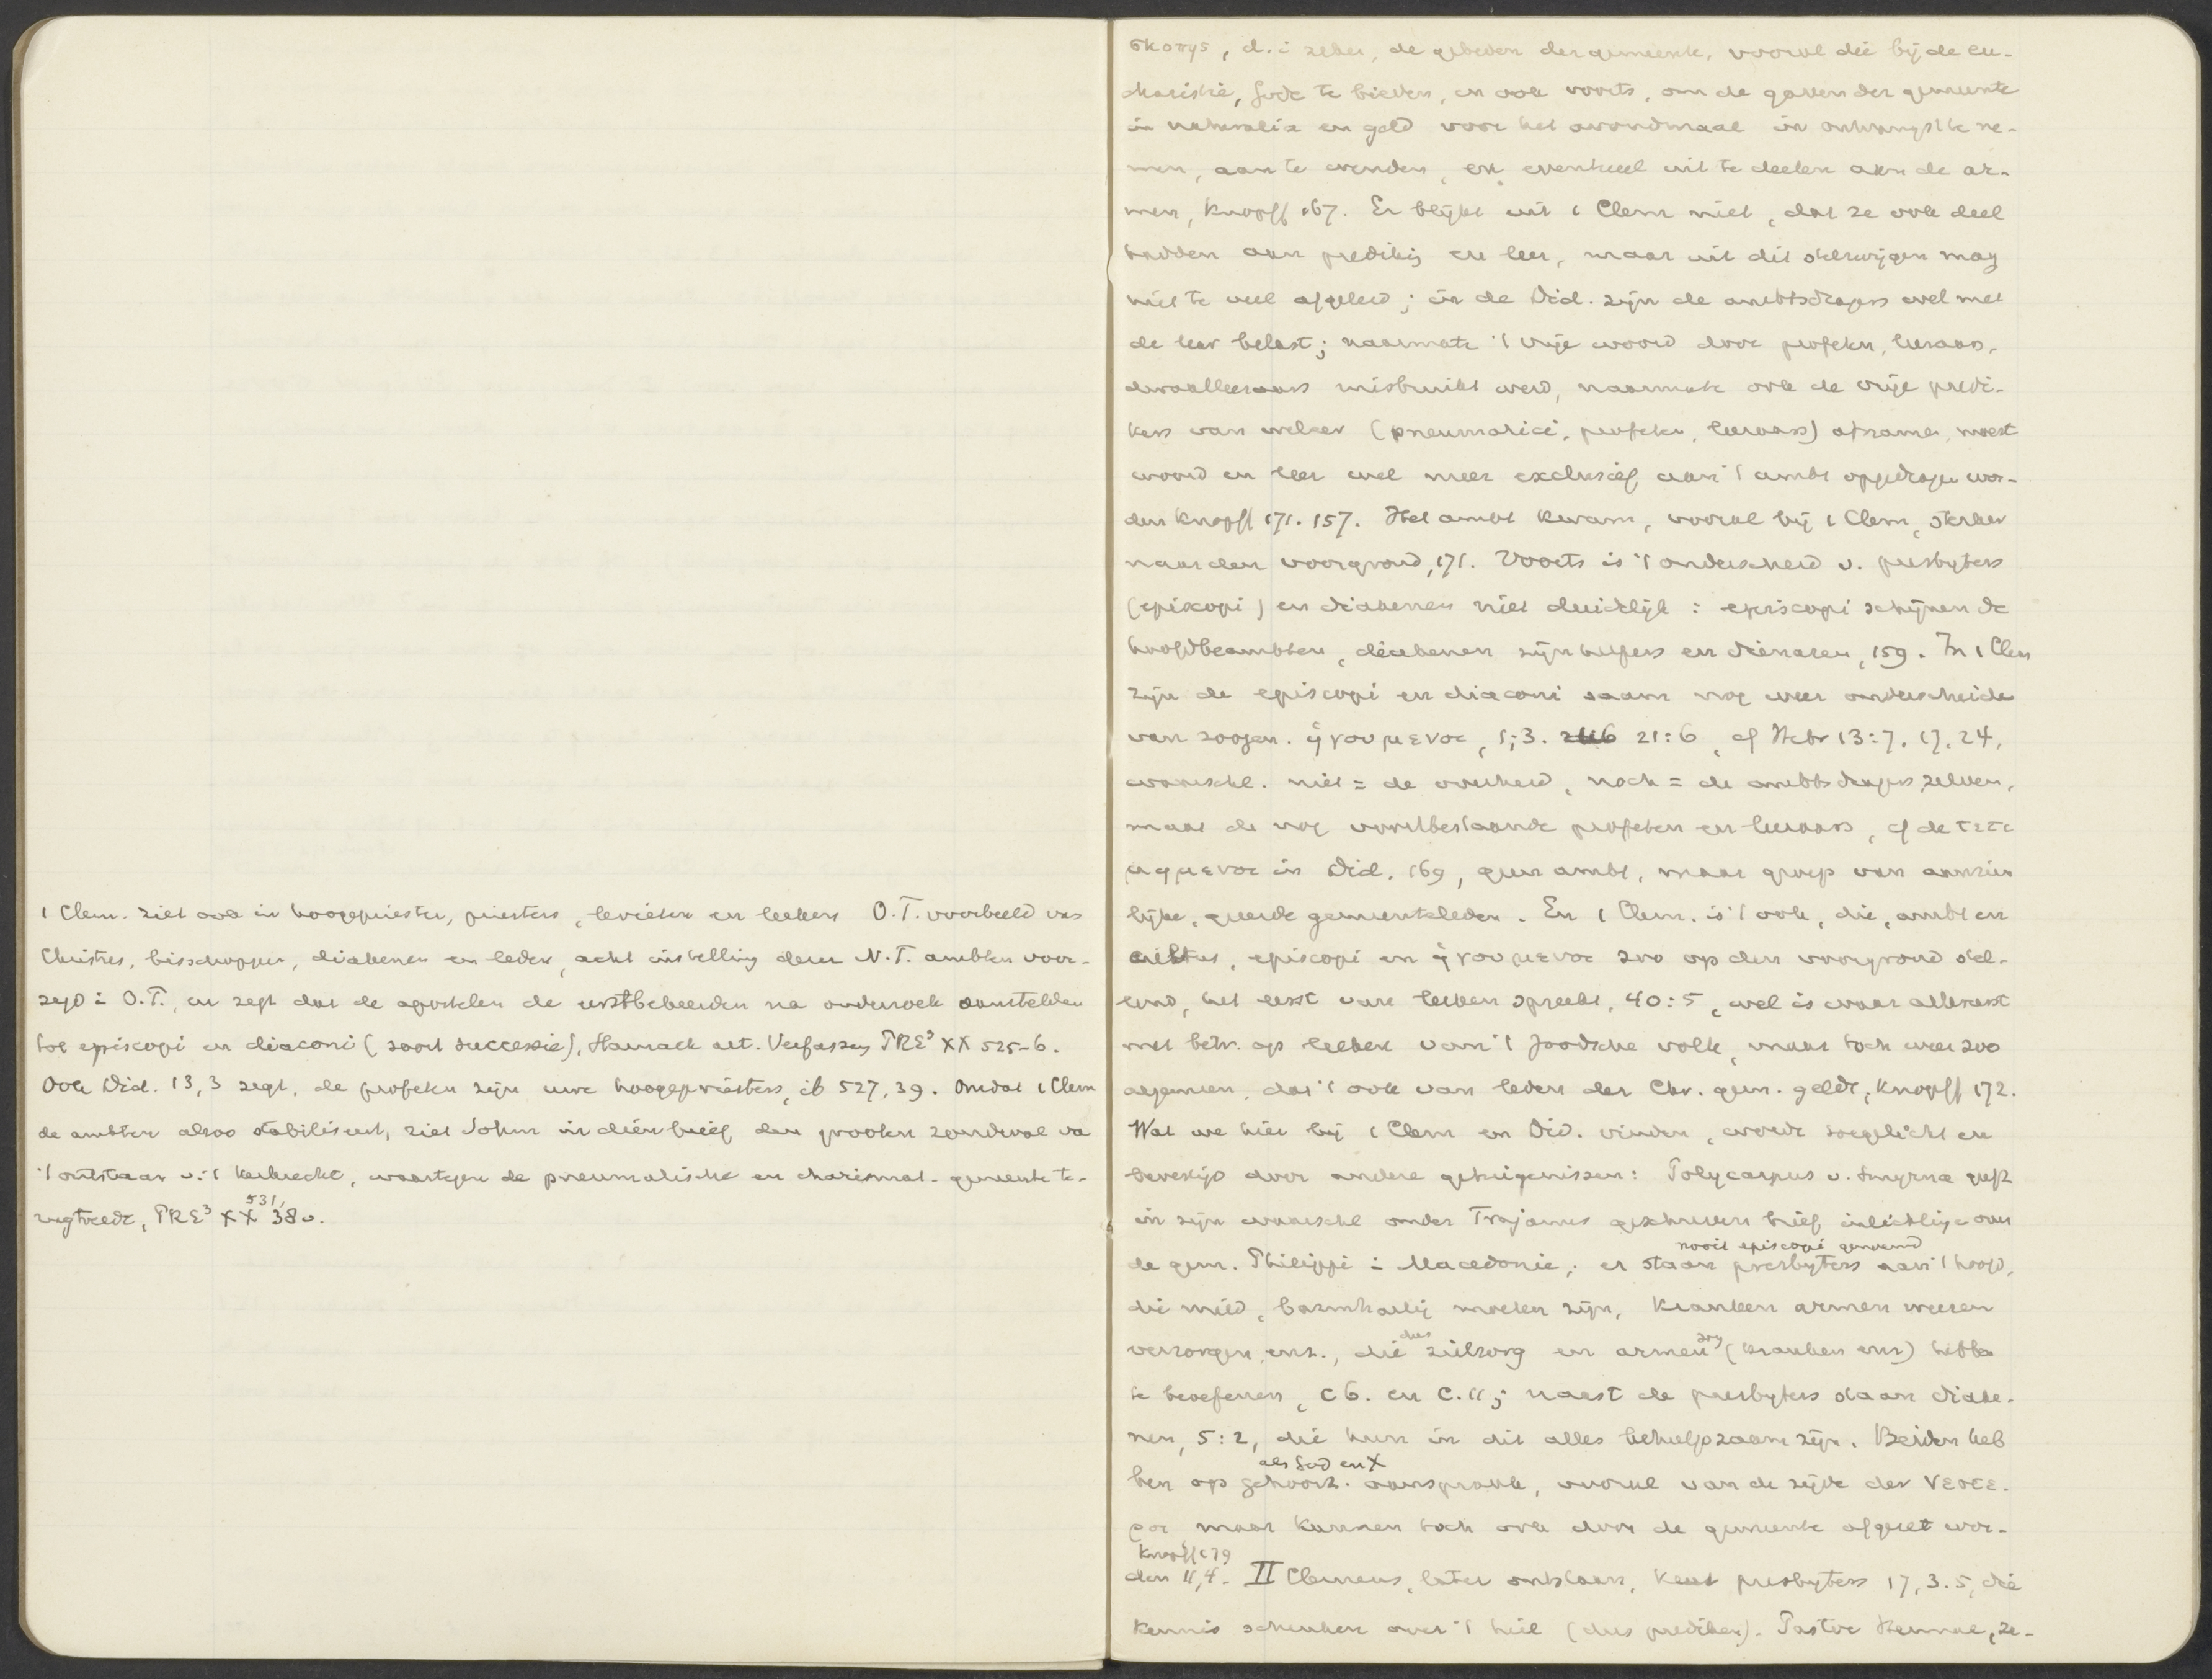 1 Clem. ziet ook in hoogepriester, priesters, levieten en leeken O.T. voorbeeld van
Christus, bisschoppen, diakenen en leden, acht instelling dezer N.T. ambten voor-
zegd i O.T., en zegt dat de apostelen de eerstbekeerden na onderzoek aanstelden
tot episcopi en diaconi (soort successie), Harnack art. Verfassung PRE³ XX 525-6.
Ook Did. 13,3 zegt, de profeten zijn uwe hoogepriesters, ib 527,39. Omdat 1 Clem
de ambten alzoo stabiliseert, ziet Sohm in dien brief den grooten zondeval va
't ontstaan v. 't kerkrecht, waartegen de pneumatische en charismat. gemeente te-
rugtreedt, PRE³ XX 531, 38v.
σκοπης, d.i zeker, de gebeden der gemeente, vooral die bij de eu-
charistie, Gode te bieden, en ook voorts, om de gaven der gemeente
in naturalia en geld voor het avondmaal in ontvangst te ne-
men, aan te wenden, en eventueel uit te deelen aan de ar-
men, Knopff 167. Er blijkt uit 1 Clem niet, dat ze ook deel
hadden aan predikg en leer, maar uit dit stilzwijgen mag
niet te veel afgeleid; in de Did. zijn de ambtsdragers wel met
de leer belast; naarmate 't vrije woord door profeten, leeraars,
dwaalleeraars misbruikt werd, naarmate ook de vrije predi-
kers van welker (pneumatici, profeten, leeraars) afnamen, moest
woord en leer wel meer exclusief aan 't ambt opgedragen wor-
den Knopff 171. 157. Het ambt kwam, vooral bij 1 Clem, sterker
naar den voorgrond, 171. Voorts is 't onderscheid v. presbyters
(episcopi) en diakenen niet duidelijk: episcopi schijnen de
hoofdbeambten, diakenen zijn helpers en dienaren, 159. In 1 Clem
zijn de episcopi en diaconi saam nog weer onderscheiden
van zoogen. ἡγουμενοι, 1;3. 21:6, cf Hebr 13:7, 17, 24,
waarschl. niet = de overheid, noch = de ambtsdragers zelven,
maar de nog voortbestaande profeten en leeraars, cf de τετι
μημενοι in Did. 169, geen ambt, maar groep van aanzien
lijke, geëerde gemeenteleden. En 1 Clem. is 't ook, die, ambt en
cultus, episcopi en ἡγουμενοι zoo op den voorgrond stel-
lend, het eerst van leeken spreekt, 40:5, wel is waar allereerst
met betr. op leeken van 't Joodsche volk, maar toch weer zoo
algemeen, dat 't ook van leden der Chr. gem. geldt, Knopff 172.
Wat we hier bij 1 Clem en Did. vinden, wordt toegelicht en
bevestigd door andere getuigenissen: Polycarpus v. Smyrna geeft
in zijn waarschl onder Trajanus geschreven brief inlichtige over
nooit episcopi genoemd
de gem. Philippi i Macedonie; er staan presbyters aan 't hoofd,
die mild, barmhartig moeten zijn, kranken armen weezen
verzorgen, enz., die dus zielzorg en armenzrg (kranken enz) hebben
te beoefenen, c 6. en c. 11; naast de presbyters staan diake-
nen, 5:2, die hun in dit alles behulpzaam zijn. Beiden heb
als God en X
ben op gehoorz. aanspraak, vooral van de zijde der νεωτε-
ροι, maar kunnen toch ook door de gemeente afgezet wor-
Knopff 179
den 11,4. II Clemens, later ontstaan, kent presbyters 17,3.5, die
kennis schenken over 't heil (dus prediken). Pastor Hermae, ze-